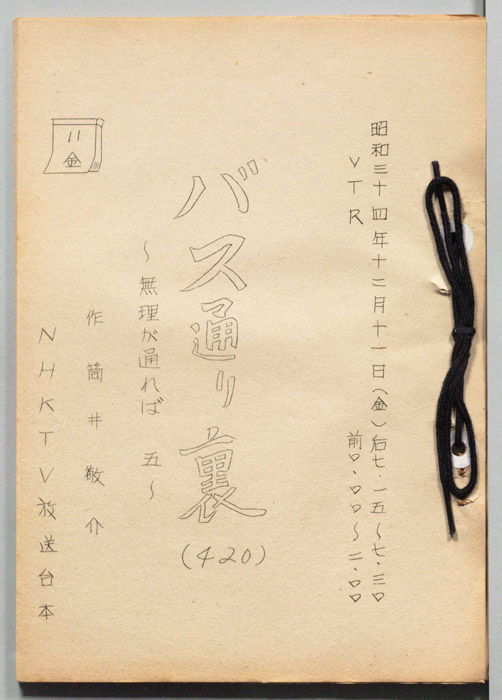 昭和三十四年十二月十一日(金)后七.一五〜七.三〇
VTR
前〇.〇〇〜二.〇〇
バス通り裏
(420)
〜無理が通れば 五〜
作 筒井敬介
NHKTV放送台本
11
金